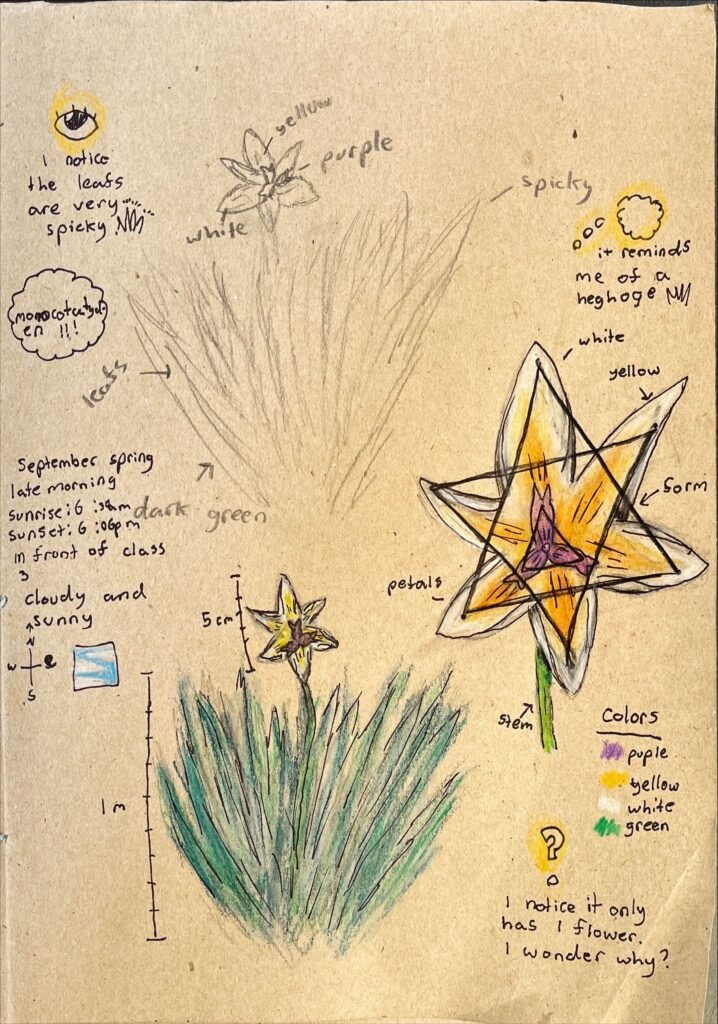 yellow
purple
white
spicky
leafs
dark green
I notice
the leafs
are very
spicky
it reminds
me of a
heghoge
September spring
late morning
sunrise: 6 :58am
sunset: 6 :06pm
in front of class
3
cloudy and
sunny
N
W
S
5 cm
1 m
white
yellow
form
petals
stem
Colors
puple
yellow
white
green
?
I notice it only
has 1 flower.
I wonder why?